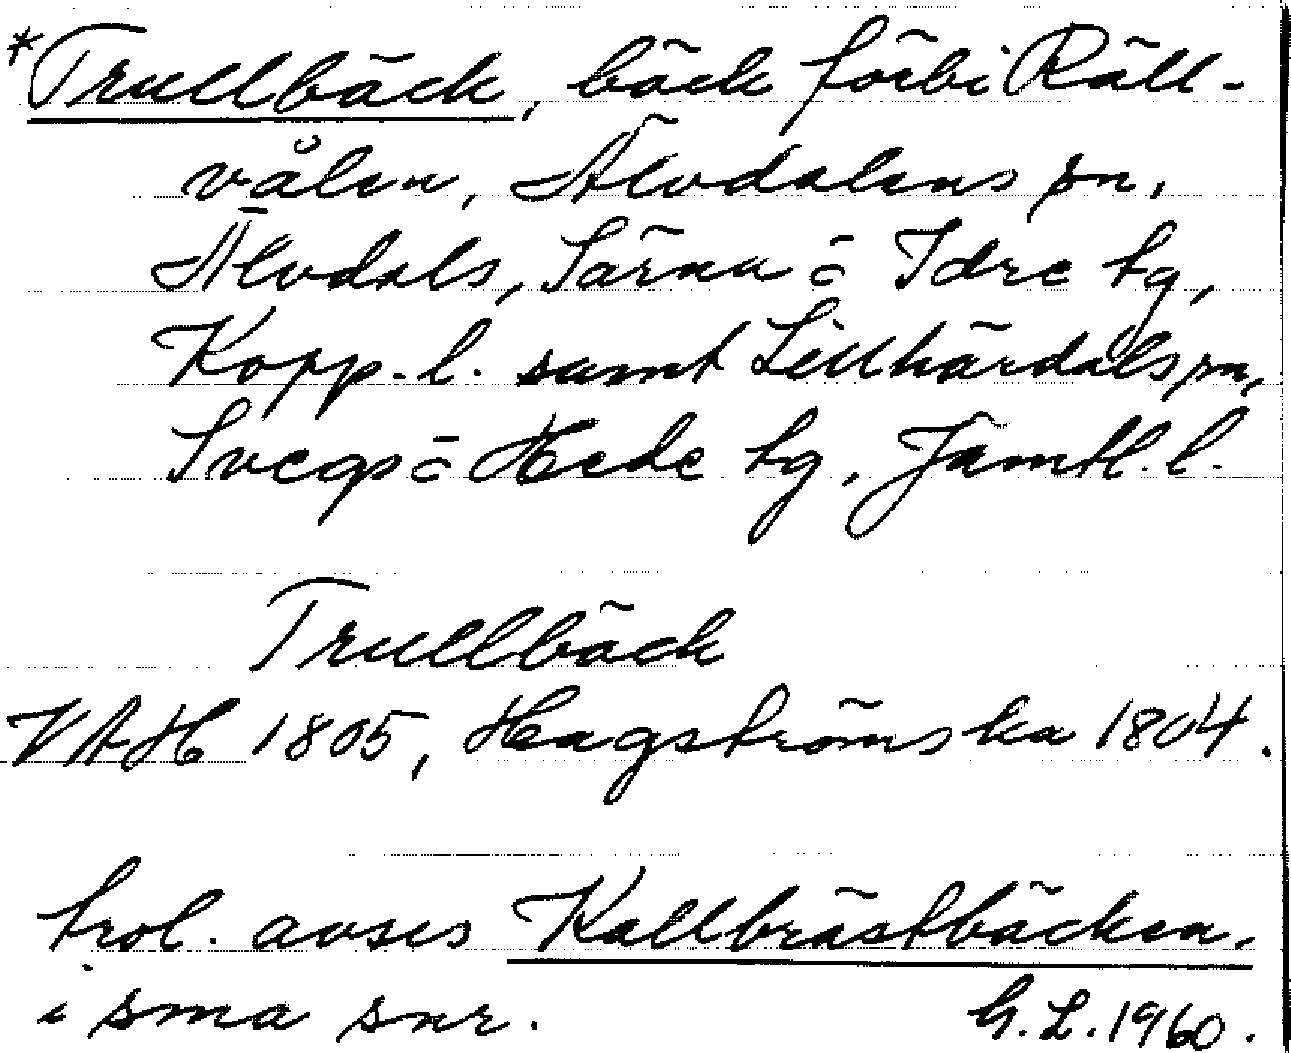 *Trullbäck, bäck förbi Räll-
vålen, Älvdalens sn,
Älvdals, Särna o Idre tg,
Kopp. l. samt Lillhärdals sn,
Svegs o Hede tg, Jämtl. l.
Trullbäck
VAH 1805, Hagströmska 1804.
trol. avses Kallbrästbäcken.
i sma snr. G.L. 1960.